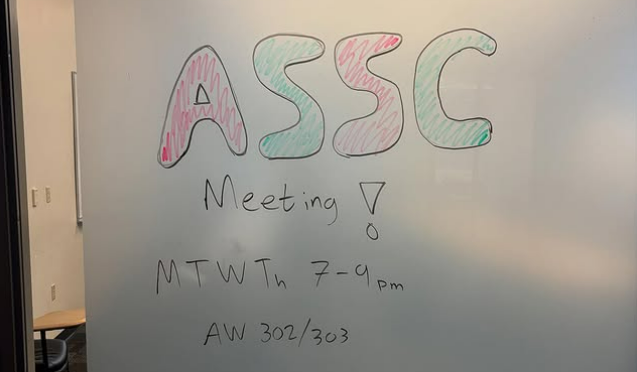 ASSC
Meeting !
MTWTh 7-9pm
AW 302/303